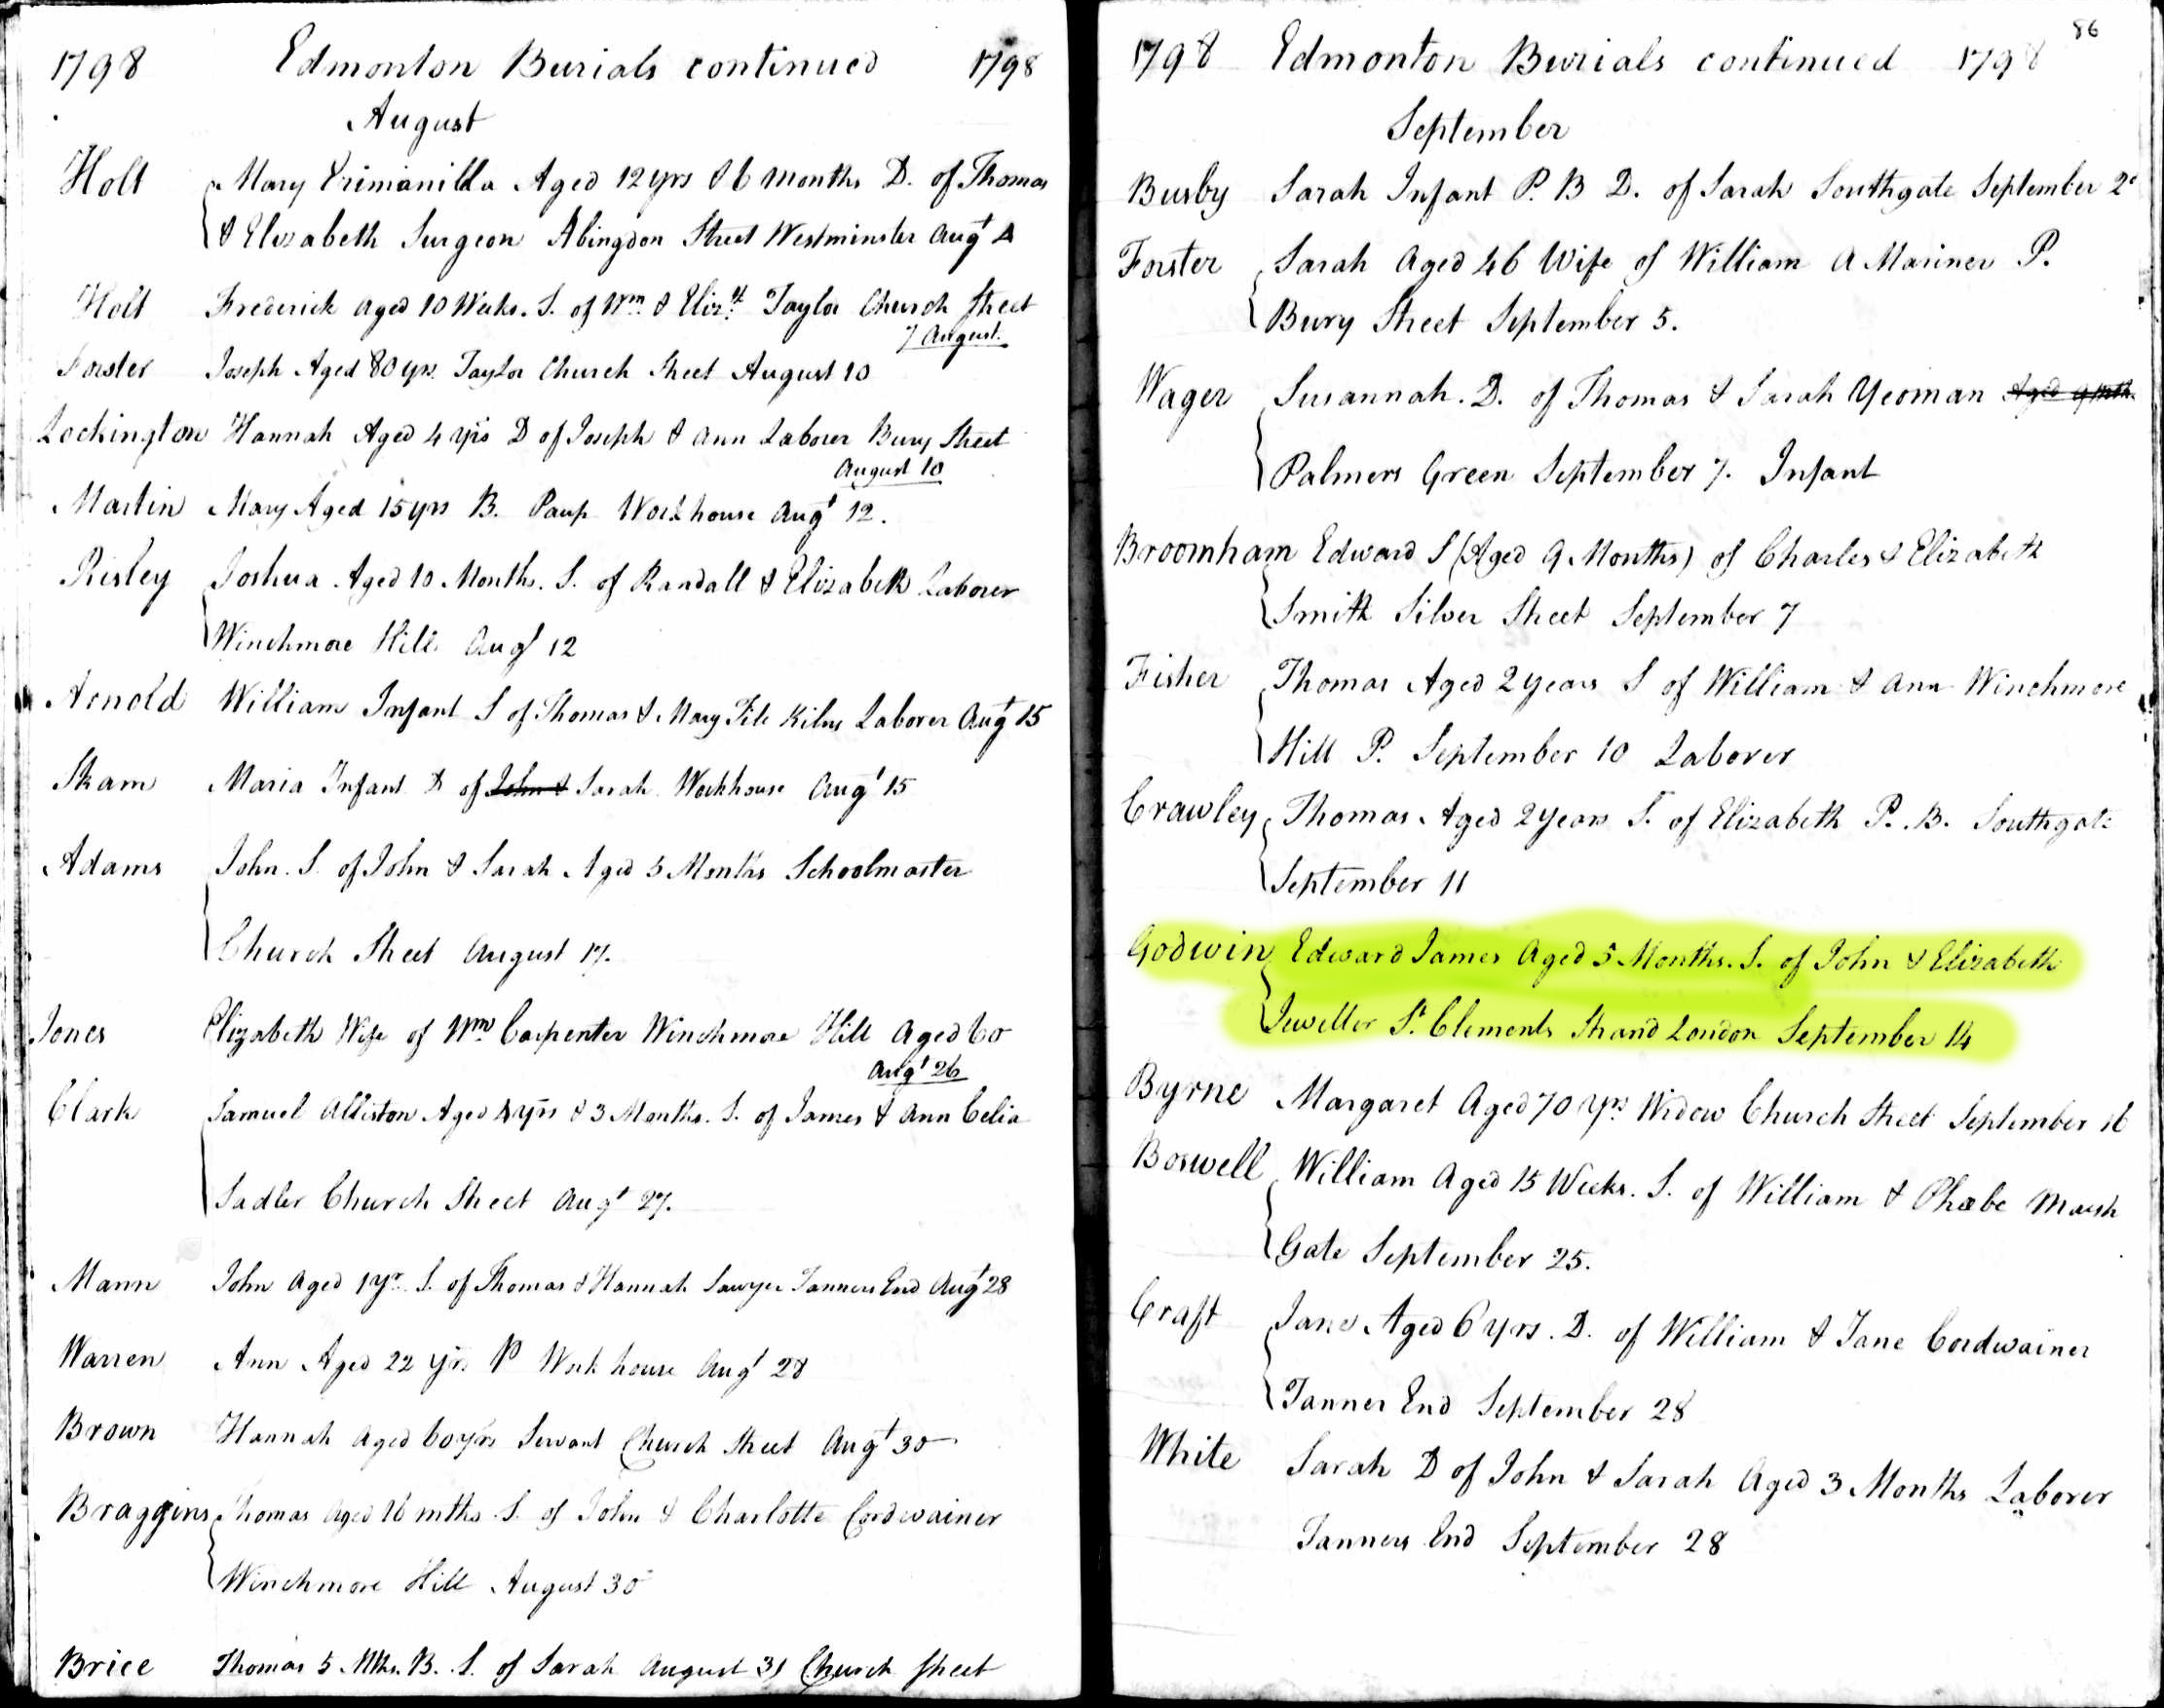 1798 Edmonton Burials continued 1798
August
Holt Mary Erimanilla Aged 12 yrs & 6 months D. of Thomas
& Elizabeth Surgeon Abingdon Street Westminster Augt 4
Holt Frederick aged 10 Weeks. S. of Wm & Elizth Taylor Church Street
7 August.
Forster Joseph Aged 80 yrs Taylor Church Street August 10
Lockington Hannah Aged 4 yrs D of Joseph & Ann Laborer Bury Street
August 10
Martin Mary Aged 15 yrs B. Paup Workhouse Augt 12.
Risley Joshua Aged 10 Months. S. of Randall & Elizabeth Laborer
Winchmore Hill Augt 12
Arnold William Infant S of Thomas & Mary Tile Kilns Laborer Augt 15
Sham Maria Infant D of John & Sarah Workhouse Augt 15
Adams John. S. of John & Sarah Aged 5 Months Schoolmaster
Church Street August 17.
Jones Elizabeth Wife of Wm Carpenter Winchmore Hill Aged 60
Augt 26
Clark Samuel Alliston Aged 4 yrs & 3 Months. S. of James & Ann Celia
Sadler Church Street Augt 27.
Mann John Aged 1 yr. S. of Thomas & Hannah Sawyer Tanners End Augt 28
Warren Ann Aged 22 yrs P Workhouse Augt 28
Brown Hannah Aged 60 yrs Servant Church Street Augt 30
Braggins Thomas Aged 16 mths. S. of John & Charlotte Cordwainer
Winchmore Hill August 30
Brice Thomas 5 Mths. B. S. of Sarah August 31 Church Street
86
1798 Edmonton Burials continued 1798
September
Busby Sarah Infant P. B D. of Sarah Southgate September 2d
Forster Sarah Aged 46 Wife of William A Mariner P.
Bury Street September 5.
Wager Susannah. D. of Thomas & Sarah Yeoman Aged 9 mth.
Palmers Green September 7. Infant
Broomham Edward S (Aged 9 Months) of Charles & Elizabeth
Smith Silver Street September 7
Fisher Thomas Aged 2 years S of William & Ann Winchmore
Hill P. September 10 Laborer
Crawley Thomas Aged 2 years S. of Elizabeth P. B. Southgate
September 11
Godwin Edward James Aged 5 Months. S. of John & Elizabeth
Jeweller St. Clements Strand London September 14
Byrne Margaret Aged 70 yrs Widow Church Street September 16
Boswell William Aged 15 Weeks. S. of William & Phœbe Marsh
Gate September 25.
Craft Jane Aged 6 yrs. D. of William & Jane Cordwainer
Tanner End September 28
White Sarah D of John & Sarah Aged 3 Months Laborer
Tanners End September 28